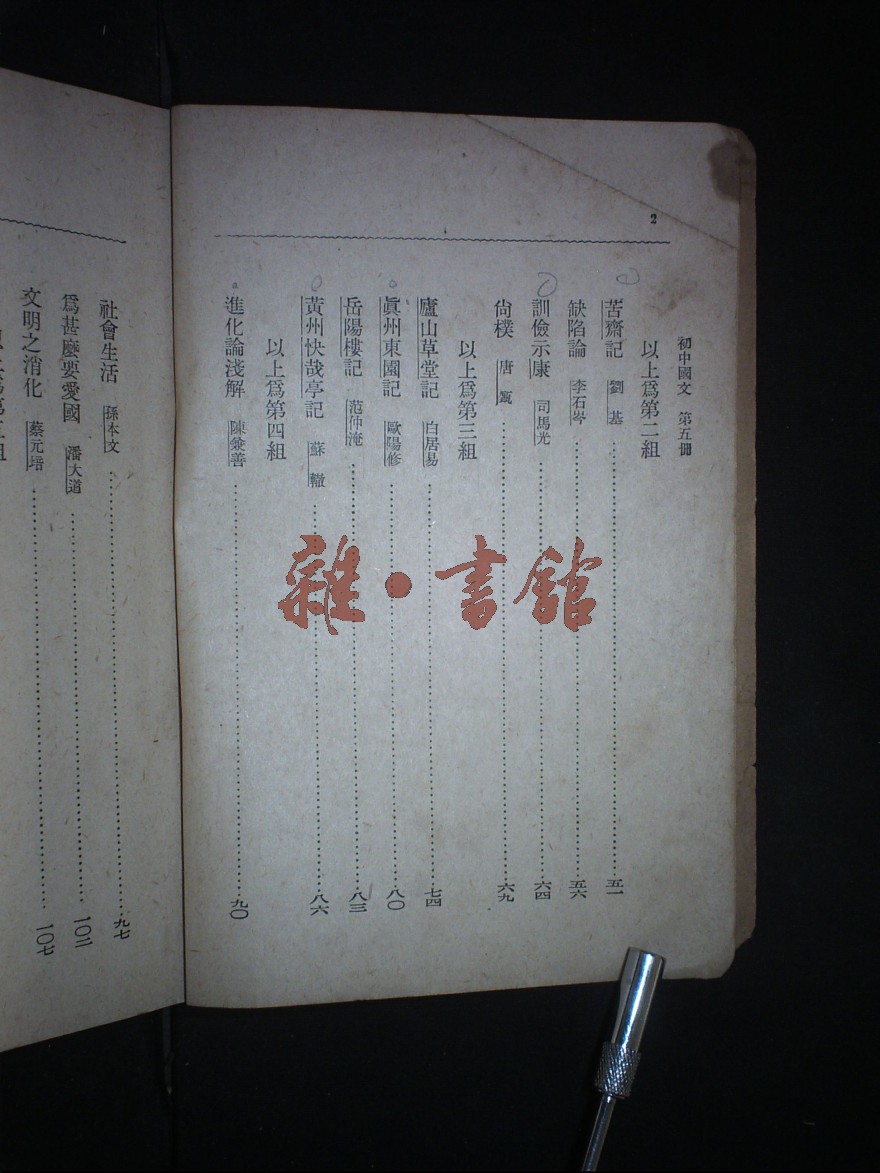 2
初中國文 第五冊
以上爲第二組
苦齋記 劉基……五一
缺陷論 李石岑……五六
訓儉示康 司馬光……六四
尙樸 唐甄……六九
以上爲第三組
廬山草堂記 白居易……七四
眞州東園記 歐陽修……八〇
岳陽樓記 范仲淹……八三
黃州快哉亭記 蘇轍……八六
以上爲第四組
進化論淺解 陳兼善……九〇
社會生活 孫本文……九七
爲甚麼要愛國 潘大道……一〇二
文明之消化 蔡元培……一〇七
雜·書館